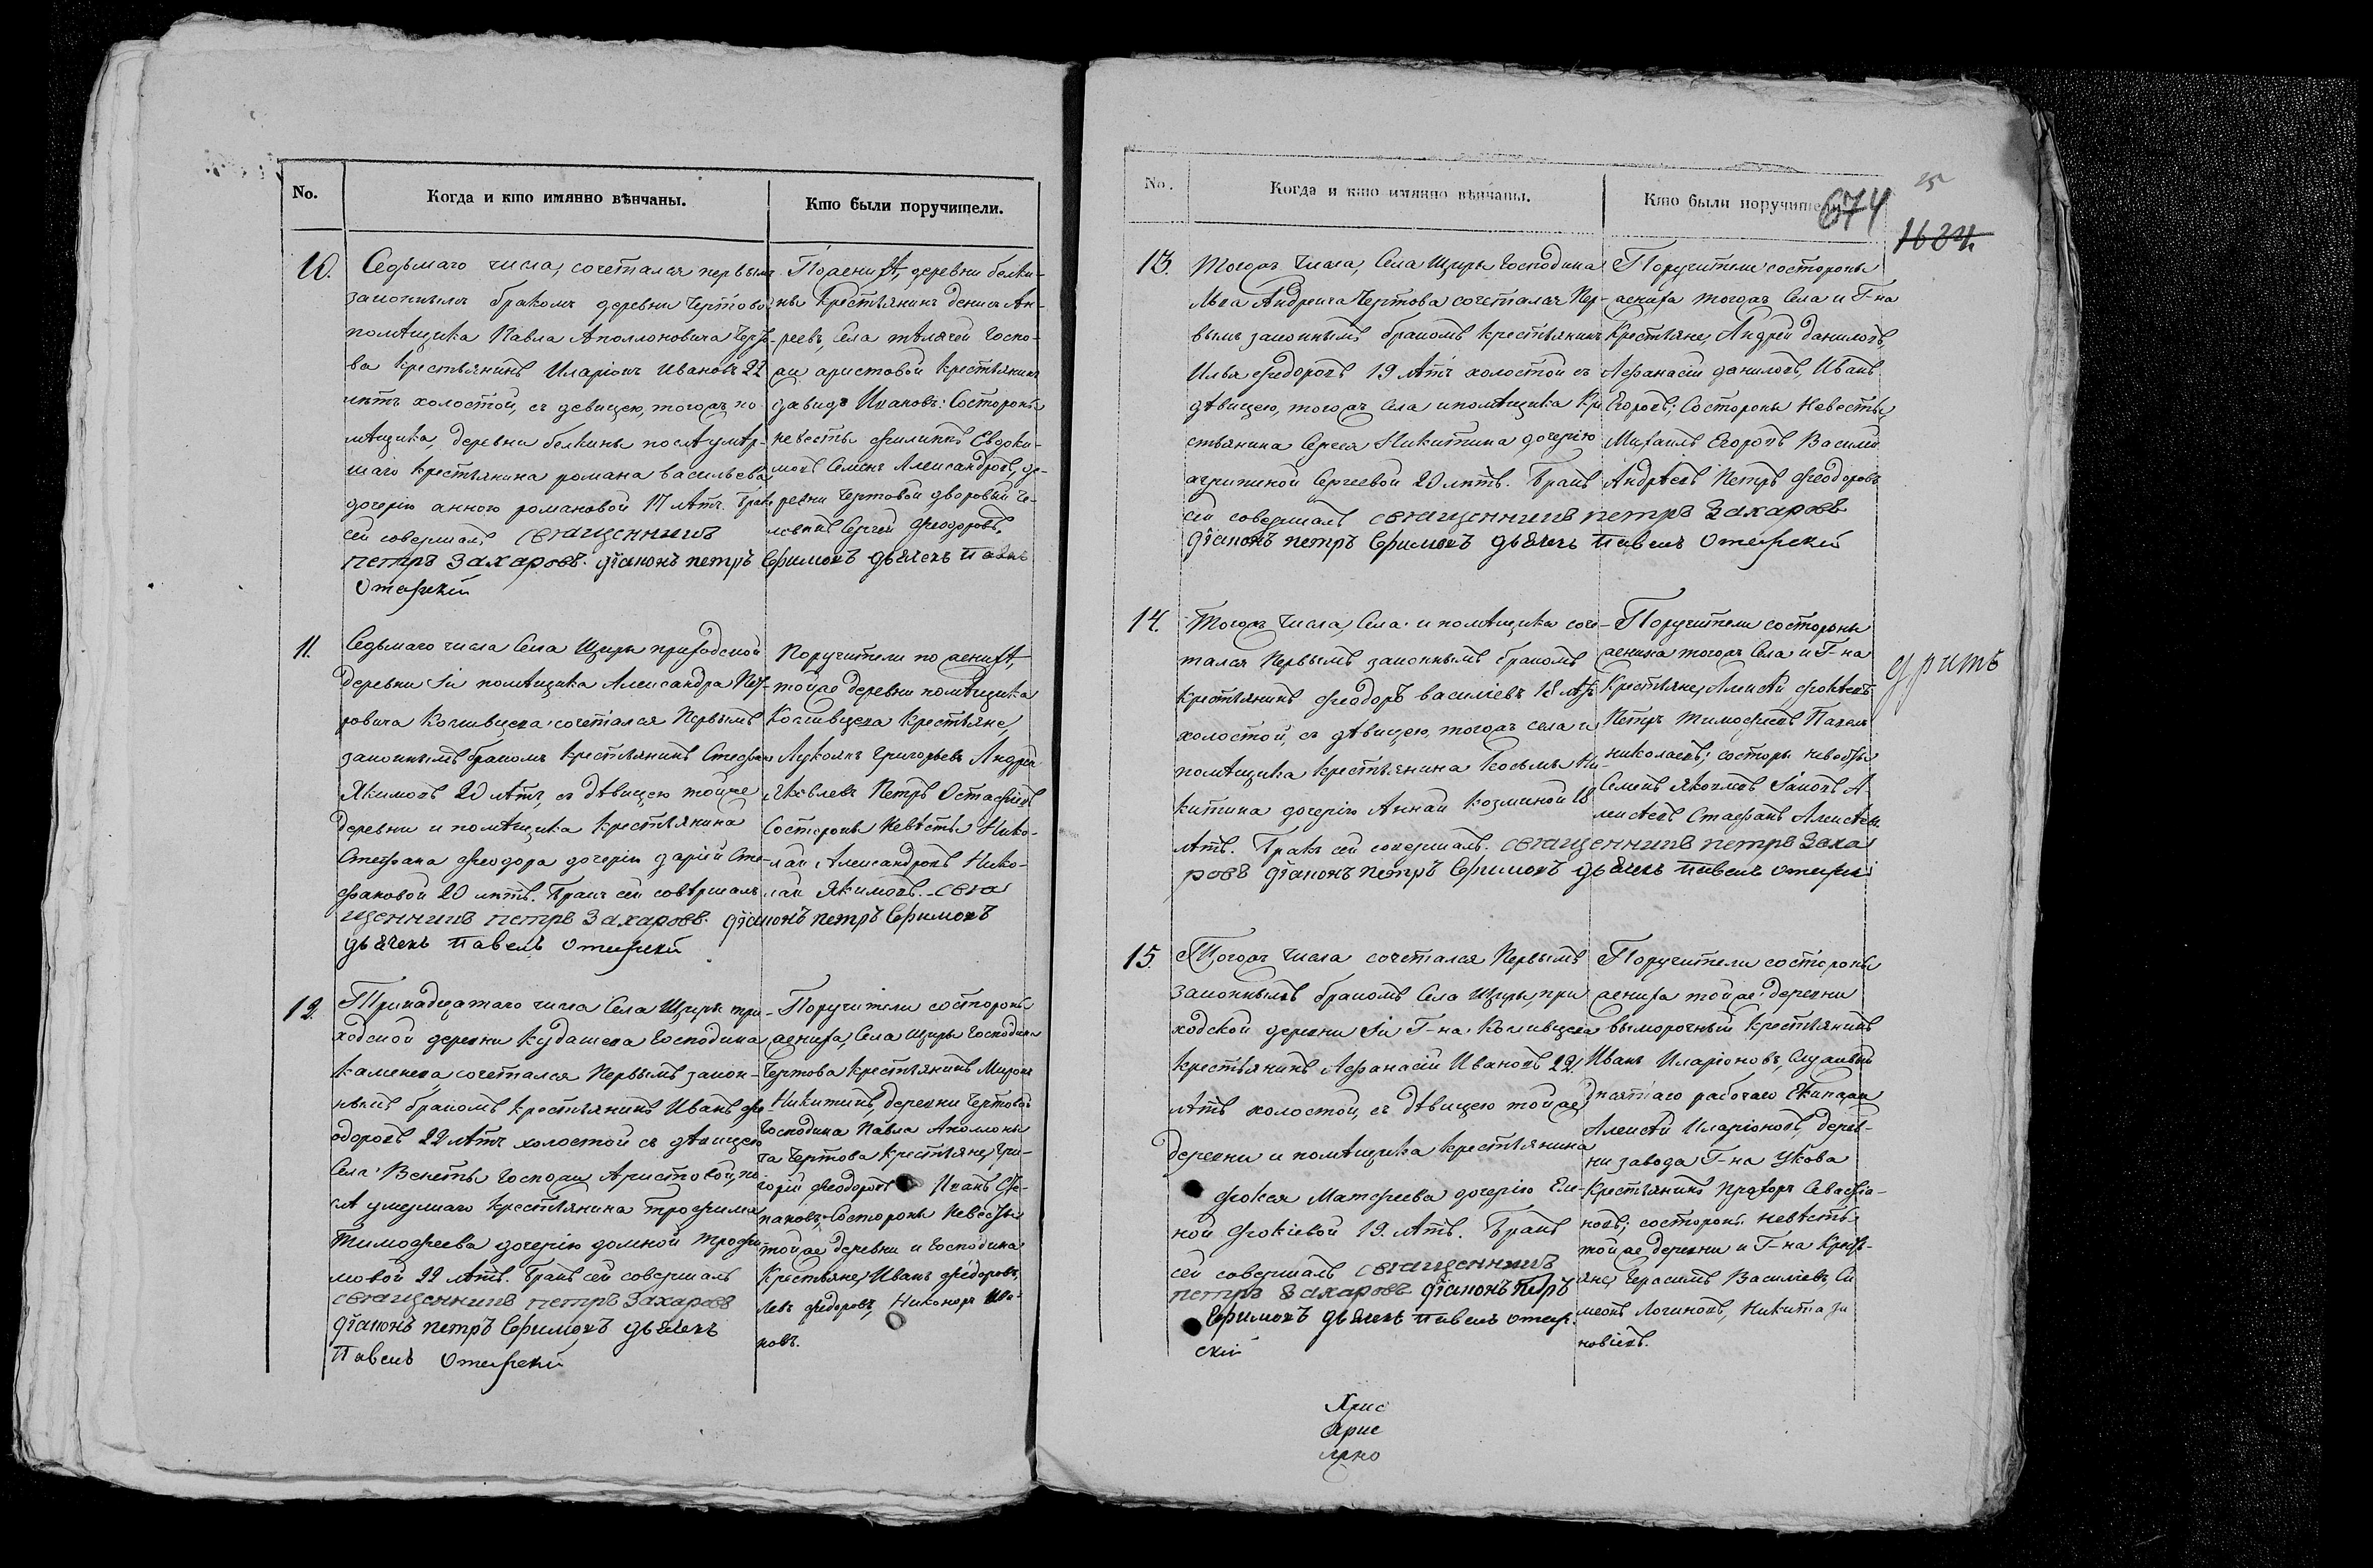 No.
Когда и кто имянно вѣнчаны.
Кто были поручители.
10.
Седьмаго числа, сочетался первымъ
законнымъ бракомъ деревни Чертово
помѣщика Павла Аполлоновича Черто-
ва крестьянинъ Иларіонъ Ивановъ 22
лѣтъ холостой, съ девицею, тогожъ по-
мѣщика деревни белкины послѣ умер-
шаго крестьянина романа васильева
дочерію анною романовой 17 лѣтъ. Бракъ
сей совершалъ священникъ
петръ Захаровъ. діаконъ петръ Ефимовъ дьячекъ Павелъ
По женихѣ, деревни белки-
ны Крестьянинъ денисъ Ан-
реевъ, Села тѣлячей Госпо-
жи аристовой крестьянинъ
давидъ Ивановъ: Состороны
невесты филиппъ Евдоки-
мовъ Семенъ Александровъ, де-
ревни Чертовой дворовый че-
ловекъ Сергей Феодоровъ,
11.
Седьмаго числа Села Щиры приходской
деревни помѣщика Александра Пет-
ровича сочетался Первымъ
законнымъ бракомъ крестьянинъ Стефанъ
Якимовъ 20 лѣтъ, съ дѣвицею тойже
деревни и помѣщика крестьянина
Стефана Феодора дочерію дарьи Сте-
фановой 20 лѣтъ. Бракъ сей совершалъ
щенникъ петръ Захаровъ. діаконъ петръ Ефимовъ
дьячекъ павелъ
Поручители по женихѣ,
тойже деревни помѣщика
крестьяне,
Лукьянъ Григорьевъ Андрей
Яковлевъ Петръ Остафьевъ
Состороны Невѣсты Нико-
лай Александровъ Нико-
лай Якимовъ. Свя
12.
Тринадцатаго числа Села Щиры при-
ходской деревни Кудашева Господина
Каменева сочетался Первымъ закон-
нымъ бракомъ крестьянинъ Иванъ Фе-
одоровъ 22 лѣтъ холостой съ дѣвицею
Села Госпожи Аристовой, по-
слѣ умершаго крестьянина трофима
Тимофеева дочерію домной трофи-
мовой 22 лѣтъ. Бракъ сей совершалъ
священникъ петръ Захаровъ
діаконъ петръ Ефимовъ дьячекъ
Павелъ
Поручители состороны
жениха, Села Щиры Господина
Чертова крестьянинъ Миронъ
Никитинъ, деревни Чертовой
Господина Павла Аполлони
ча Чертова крестьяне, Гри-
горій Феодоровъ Иванъ Сте-
пановъ; Состороны Невесты
тойже деревни и Господина
Крестьяне, Иванъ Федоровъ,
Левъ Федоровъ, Никоноръ Ива-
новъ.
No.
Когда и кто имянно вѣнчаны.
Кто были поручители.
674
1684
13.
Тогожъ числа, Села Щиры Господина
Льва Андреича Чертова сочетался Пер-
вымъ законнымъ бракомъ крестьянинъ
Илья Федоровъ 19 лѣтъ холостой съ
дѣвицею, тогожъ села и помѣщика Кре
стьянина Сергея Никитина, дочерію
агрипиной Сергеевой 20 лѣтъ. Бракъ
сей совершалъ священникъ петръ Захаровъ
діаконъ петръ Ефимовъ дьячекъ павелъ
Поручители состороны
жениха тогожъ Села и Г-на
Крестьяне, Андрей даниловъ,
Афанасій даниловъ, Иванъ
Егоровъ; Состороны Невесты
Михаилъ Егоровъ Василій
Андрѣевъ Петръ Феодоровъ
14.
Тогожъ числа, Села и помѣщика соче-
тался Первымъ законнымъ бракомъ
крестьянинъ Феодоръ василіевъ 18 лѣтъ
холостой, съ дѣвицею, тогожъ села и
помѣщика крестьянина Косьмы Ни-
китина дочерію Анной Козминой 18
лѣтъ. Бракъ сей совершалъ. священникъ петръ Заха
ровъ діаконъ петръ Ефимовъ дьячекъ павелъ
Поручители состороны
жениха тогожъ Села и Г-на
Крестьяне, Алексѣй
Петръ Тимофеевъ Павелъ
николаевъ; состоры невесты
Семенъ Яковлевъ А-
лексѣевъ Стафанъ Алексѣевъ
15.
Тогожъ числа сочетался Первымъ
законнымъ бракомъ Села Щиры, при
ходской деревни Г-на
крестьянинъ Афанасій Ивановъ 22
лѣтъ холостой, съ дѣвицею тойже
деревни и помѣщика крестьянина
Фокея Матфеева дочерію Еле-
ной Фокіевой 19. лѣтъ. Бракъ
сей совершалъ священникъ
петръ Захаровъ діаконъ петръ
Ефимовъ дьячекъ павелъ
скій
Поручители состороны
жениха тойже деревни
выморочный крестьянинъ
Иванъ Иларіоновъ, Служивый
рабочаго Екипажа
Алексѣй Иларіоновъ, дерев-
ни завода Г-на Укова
крестьянинъ
новъ; состороны невѣсты
тойже деревни и Г-на Кресть-
яне, Герасимъ Василіевъ, Си
меонъ Логиновъ, Никита Зи
новіевъ.
Хрис